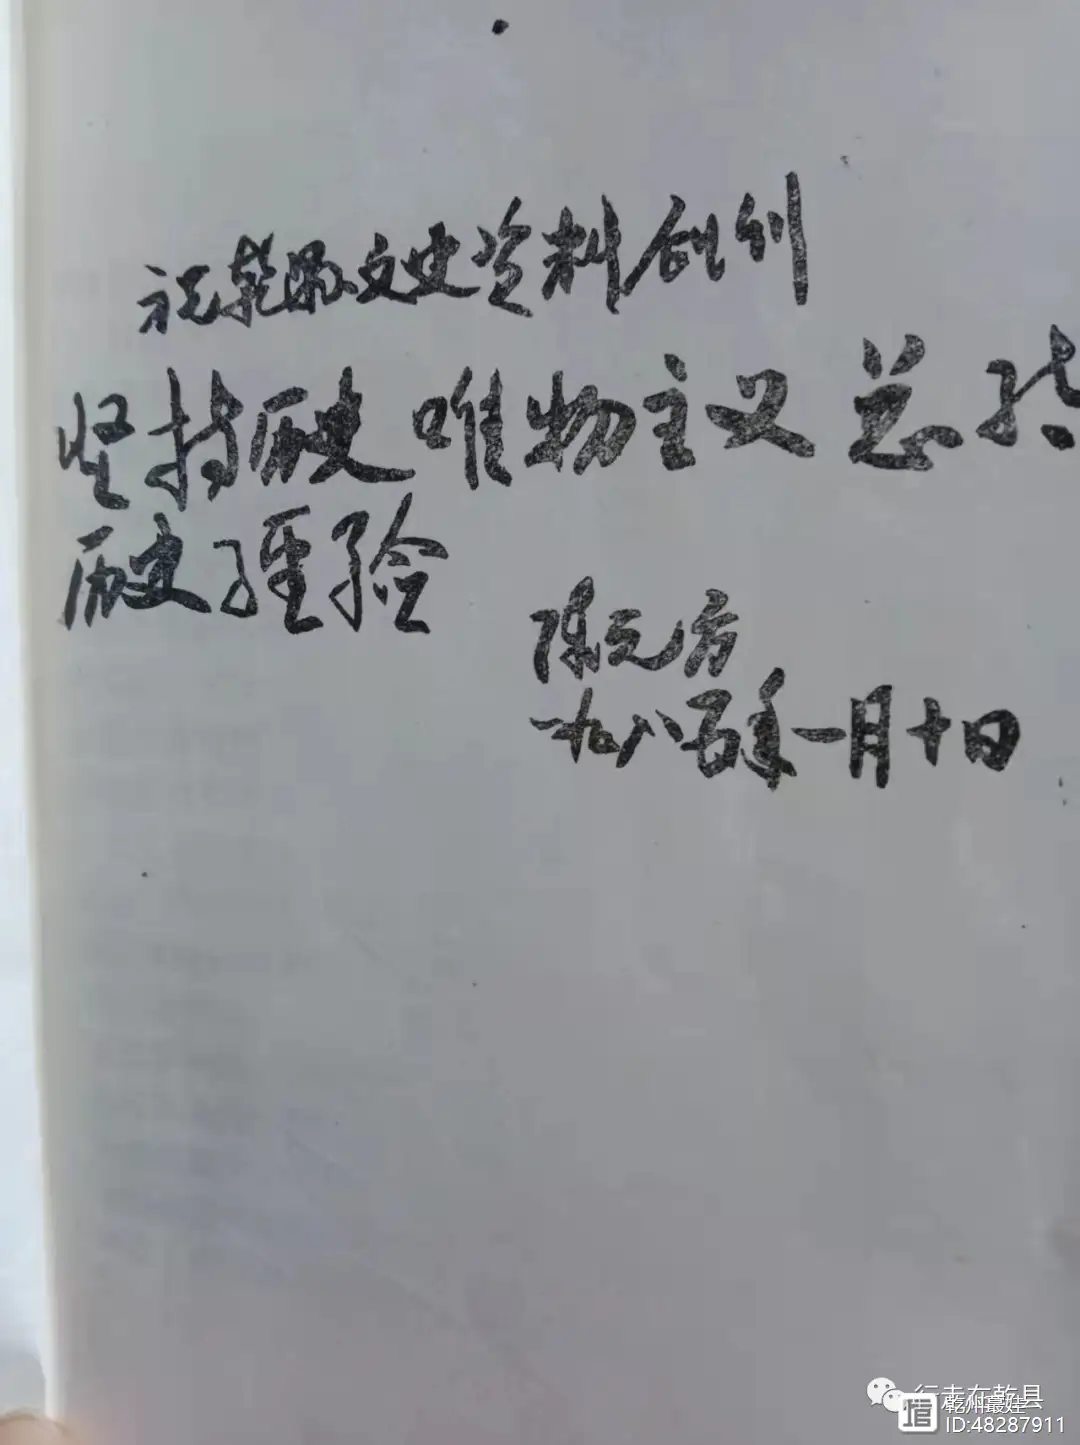 祝乾县文史资料创刊
坚持历史唯物主义 总结
历史经验
陈元方
一九八五年一月十日
行走在乾县
乾州蕞娃
ID:48287911